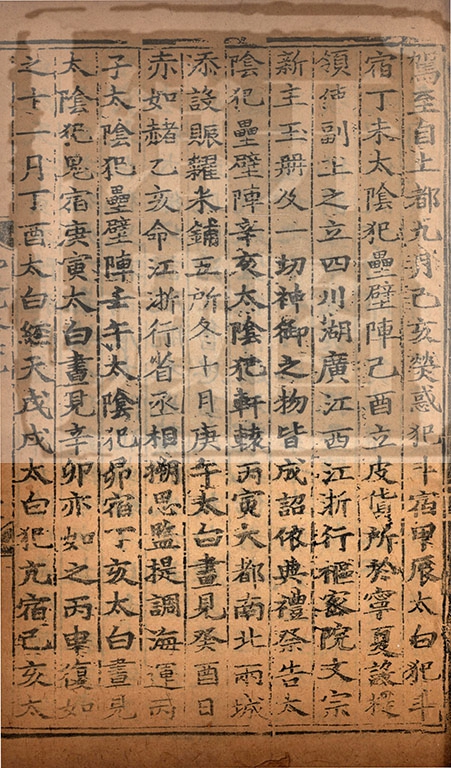 駕至自上都九月己亥熒惑犯斗宿甲辰太白犯斗
宿丁未太陰犯壘壁陣己酉立皮貨所於寧夏設提
領使副主之立四川湖廣江西江浙行樞密院文宗
新主玉冊及一切神御之物皆成詔依典禮祭告太
陰犯壘壁陣辛亥太陰犯軒轅丙寅大都南北兩城
添設賑糶米鋪五所冬十月庚午太白晝見癸酉日
赤如赭乙亥命江浙行省丞相搠思監提調海運丙
子太陰犯壘壁陣壬午太陰犯昴宿丁亥太白晝見
太陰犯鬼宿庚寅太白晝見辛卯亦如之丙申復如
之十一月丁酉太白經天戊戌太白犯亢宿己亥太